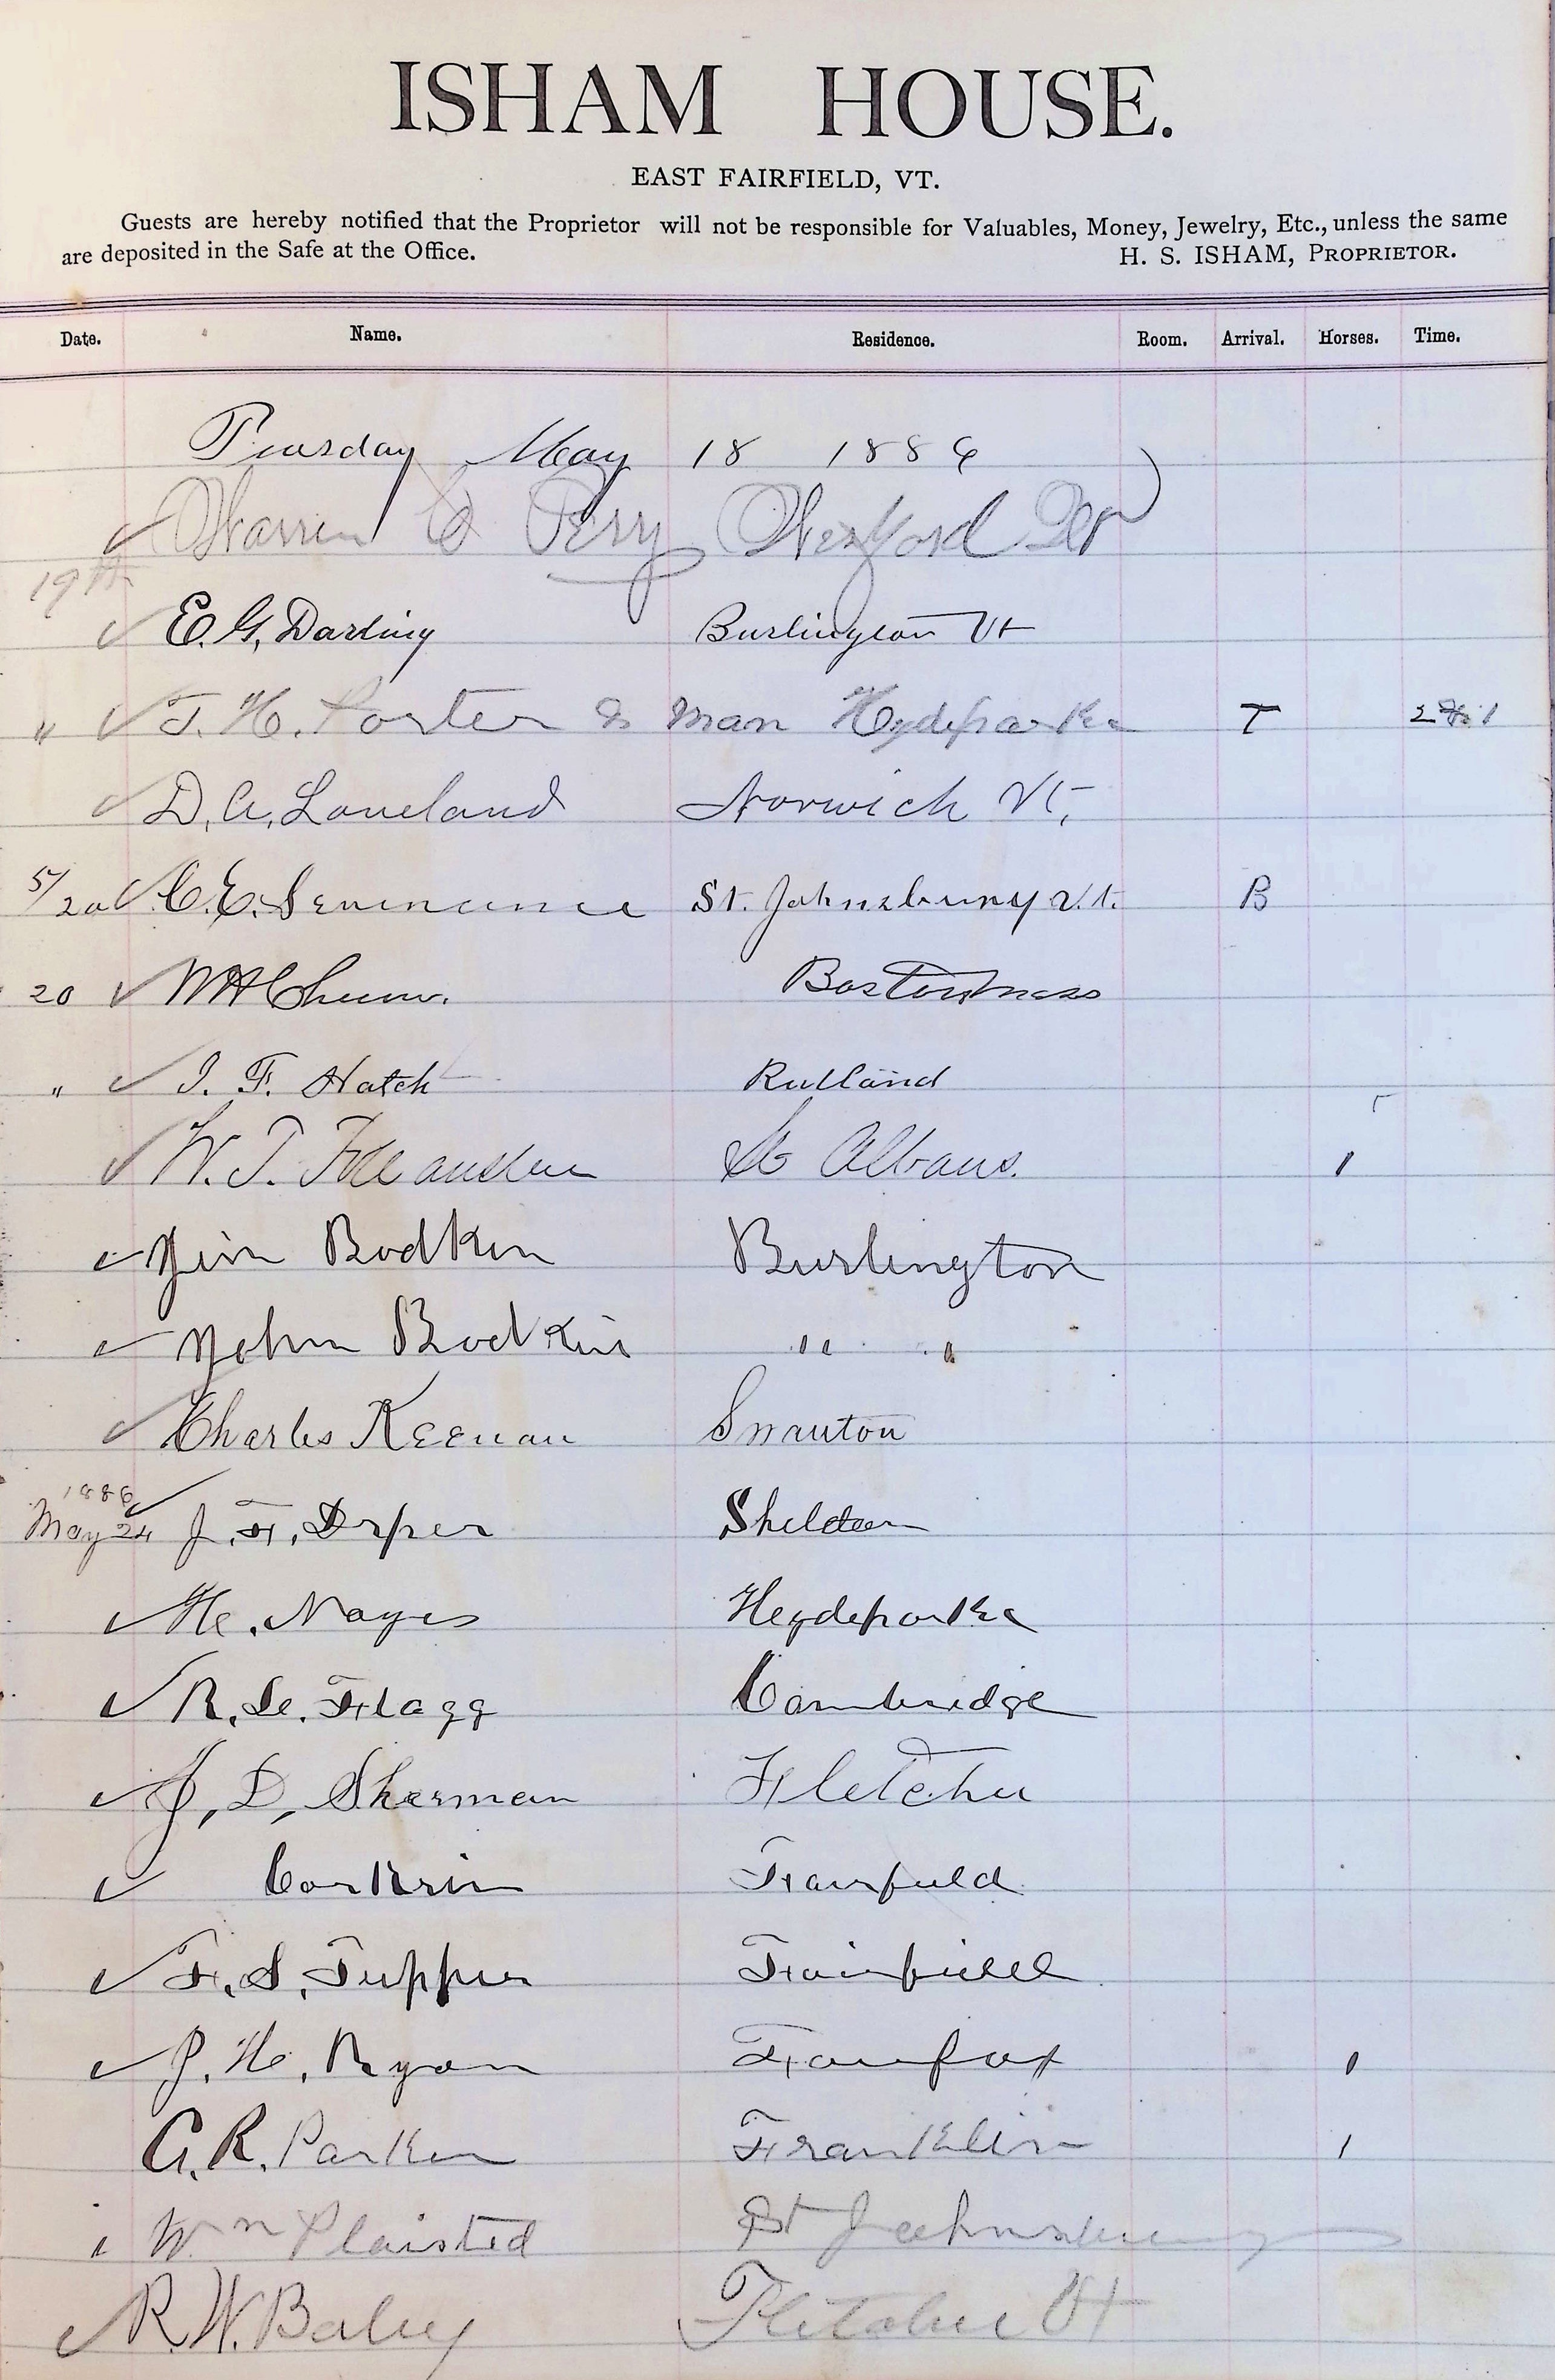 ISHAM HOUSE.
EAST FAIRFIELD, VT.
Guests are hereby notified that the Proprietor will not be responsible for Valuables, Money, Jewelry, Etc., unless the same
are deposited in the Safe at the Office. H. S. ISHAM, PROPRIETOR.
Date. Name. Residence. Room. Arrival. Horses. Time.
Tuesday May 18 1886
Warren Perry Westford Vt
19th
E. G. Darling Burlington Vt
" T. H. Porter & man Hydeparke T
D. A. Loveland Norwich Vt,
5/20 C. E. Severance St. Johnsbury V.t. B
20 Boston mass
" I. F. Hatch Rutland
W. T. St Albans. 1
Jim Bodkin Burlington
John Bodkin " "
Charles Keenan Swanton
1886
May 24 J. F. Drper Sheldon
H. Noyes Hydeparke
R. L. Flagg Cambridge
J, D, Sherman Fletcher
Corkrin Fairfield
F. S. Tupper Fairfield
J. H. Ryan Fairfax 1
G. R. Parker Franklin 1
Wm Plaisted St Johnsbury
R. W. Baley Fletcher Vt